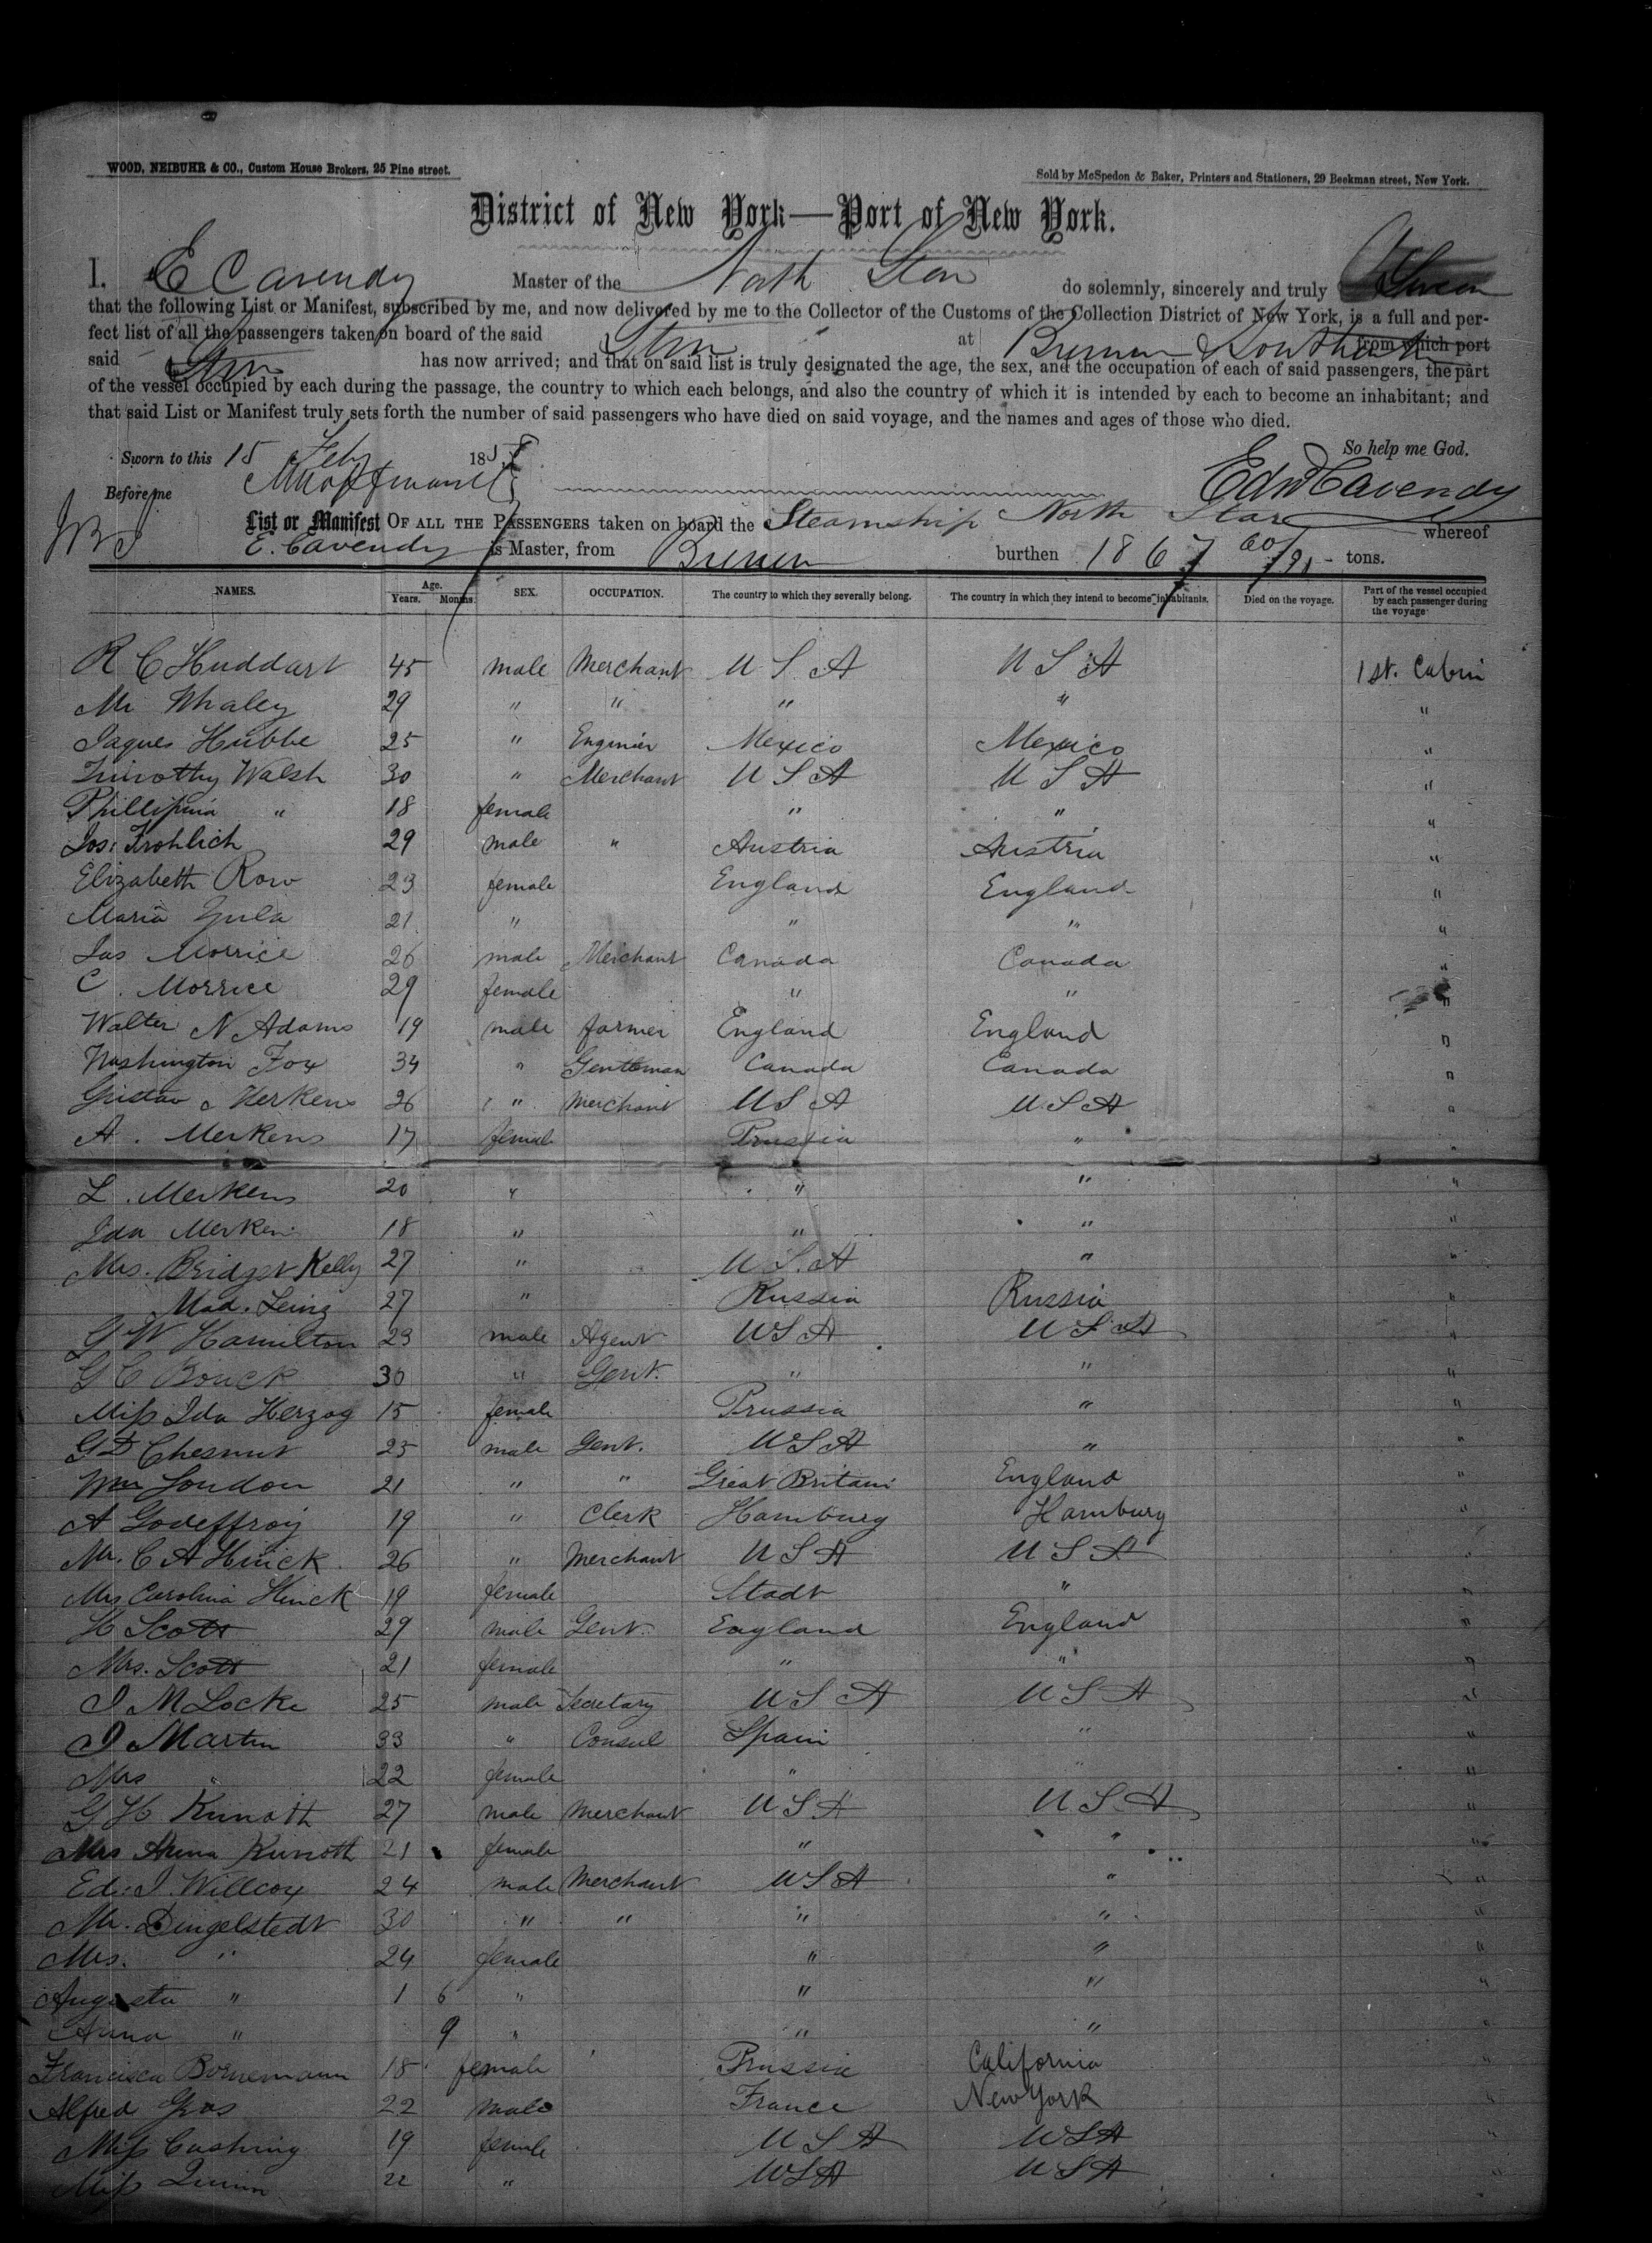 WOOD, NEIBUHR & CO., Custom House Brokers, 25 Pine street.
Sold by McSpedon & Baker, Printers and Stationers, 29 Beekman street, New York.
District of New York—Port of New York.
I, E Cavendy Master of the North Star do solemnly, sincerely and truly Swear
that the following List or Manifest, subscribed by me, and now delivered by me to the Collector of the Customs of the Collection District of New York, is a full and per-
fect list of all the passengers taken on board of the said Stm at Bremen & from which port
said Stm has now arrived; and that on said list is truly designated the age, the sex, and the occupation of each of said passengers, the part
of the vessel occupied by each during the passage, the country to which each belongs, and also the country of which it is intended by each to become an inhabitant; and
that said List or Manifest truly sets forth the number of said passengers who have died on said voyage, and the names and ages of those who died.
So help me God.
Sworn to this 15 Feby 185
Before me Edw Cavendy
List or Manifest OF ALL THE PASSENGERS taken on board the Steamship North Star whereof
E. Cavendy is Master, from Bremen burthen 1867 60/ tons.
NAMES. Age. Years. Months. SEX. OCCUPATION. The country to which they severally belong. The country in which they intend to become inhabitants. Died on the voyage. Part of the vessel occupied by each passenger during the voyage
R C Huddart 45 male Merchant U S A U S A 1 st. Cabin
Mr Whaley 29 " " " " "
Jaques Hubbe 25 " Enginier Mexico Mexico "
Timothy Walsh 30 " Merchant U S A U S A "
Phillipina " 18 female " " "
Jos: Frohlich 29 male " Austria Austria "
Elizabeth Row 23 female England England "
Maria 21 " " " "
Jas Morrice 26 male Merchant Canada Canada "
C. Morrice 29 female " " "
Walter N Adams 19 male farmer England England "
Washington Fox 34 " Gentleman Canada Canada "
Gustav Merkens 26 " Merchant U S A U S A "
A. Merkens 17 female Prussia " "
L. Merkens 20 " " " "
Ida Merkens 18 " " " "
Mrs. Bridget Kelly 27 " U S A " "
Mad. Leinz 27 " Russia Russia "
G W Hamilton 23 male Agent U S A U S A "
G C Bouck 30 " Gent. " " "
Miss Ida Herzog 15 female Prussia " "
G D Chesnut 25 male Gent. U S A " "
Wm Loudon 21 " " Great Britain England "
A Godeffroy 19 " Clerk Hamburg Hamburg "
Mr. C A Hinck 26 " Merchant U S A U S A "
Mrs Carolina Hinck 19 female Stadt " "
H Scott 29 male Gent. England England "
Mrs. Scott 21 female " " "
J M Locke 25 male Secretary U S A U S A "
J Martin 33 " Consul Spain " "
Mrs " 22 female " " "
G H Kunoth 27 male Merchant U S A U S A "
Mrs Anna Kunoth 21 female " " "
Edw: J. Willcox 24 male Merchant U S A " "
Mr. Dingelstedt 30 " " " " "
Mrs. " 24 female " " "
Augusta " 1 6 " " " "
Anna " 9 " " " "
Francisca Bornemann 18 female Prussia California "
Alfred Gros 22 male France New York "
Miss Cushing 19 female U S A U S A "
Miss Quinn 22 " U S A U S A "